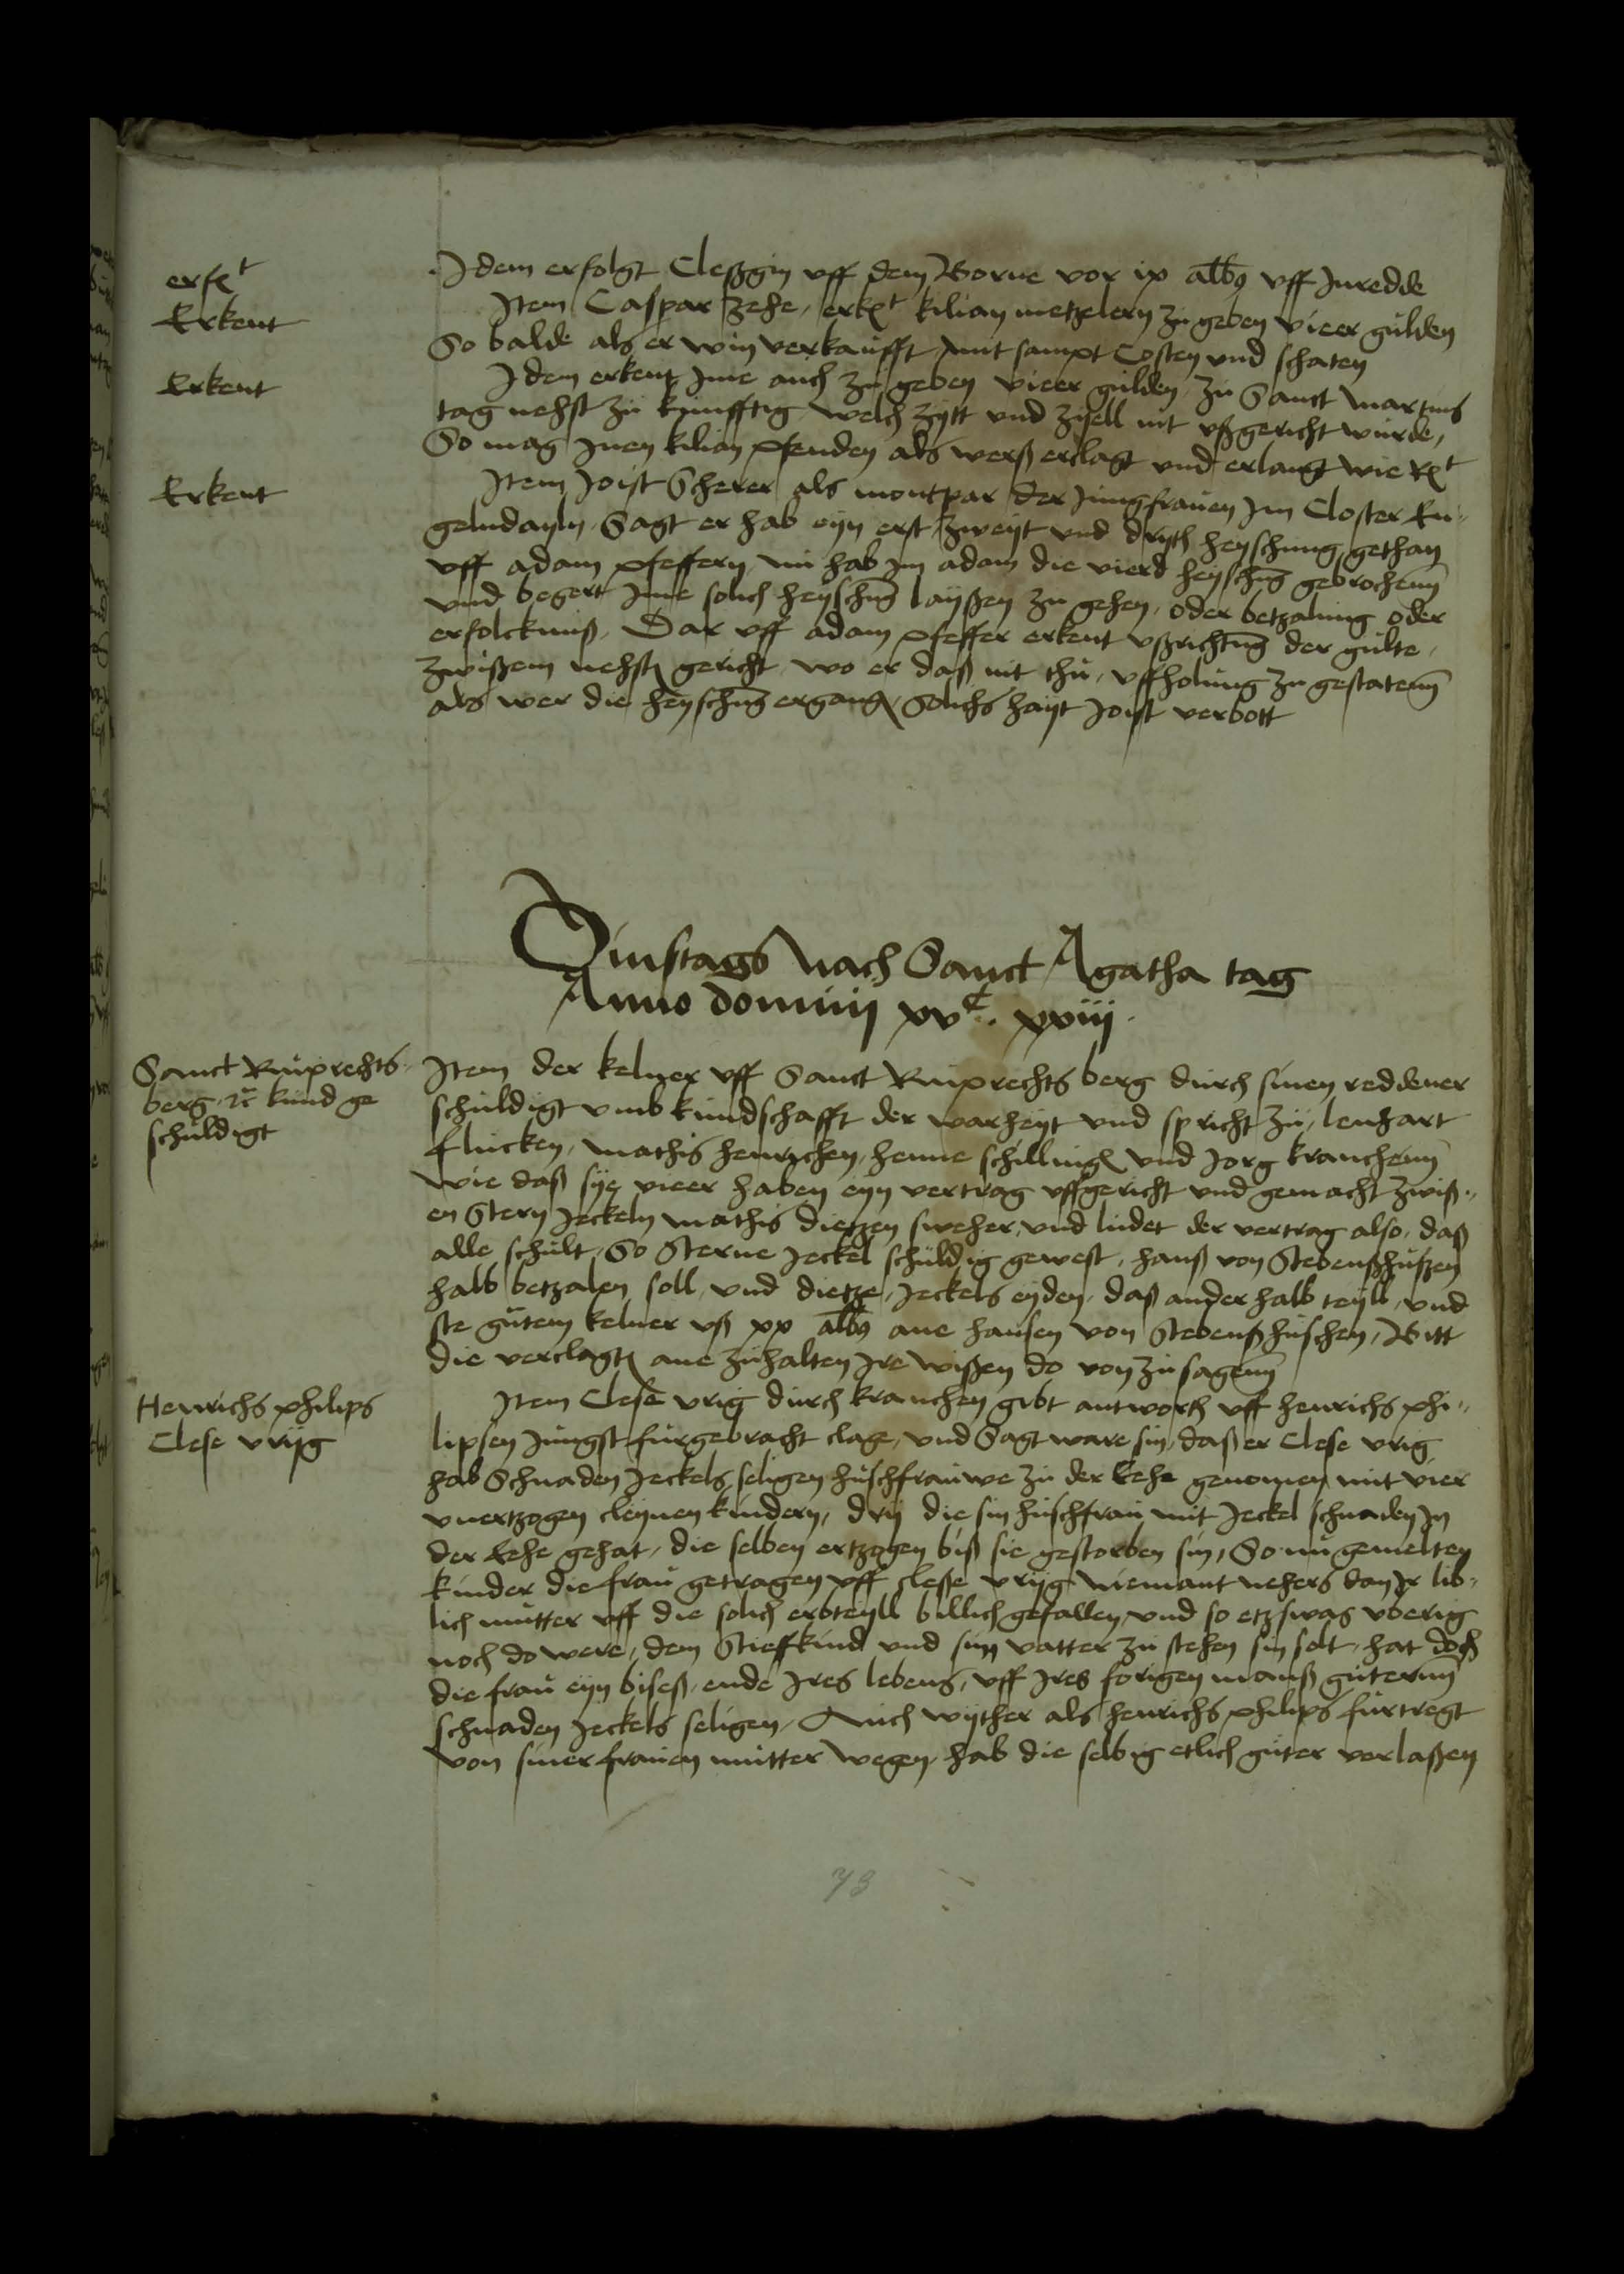 erk t
Idem erfolgt Cleßgin uff dem Borne vor ix albus uff Inredde
Erkent
Item Caspar Zehe, erk t kilian metzelern zu geben vieer gulden
So balde als er win verkaufft mit sampt Costen und schaten
Erkent
Idem erkent Ime auch zu geben vieer gulden zu Sanct Martins
tag nehst zu kunfftig welch zytt und zyell nit ußgericht wurde,
So mag Inen kilian pfenden als werß erclagt und erlangt wie R t
Erkent
Item Joist Scherer als montpar der Jungfrauen Im Closter Eu„
gelndayln. Sagt er hab eyn erst, zweyt und dryth heyschung gethan
uff adam pfeffern, nu hab im adam die vierd heyschung gebrochenn
und begert Ime solich heyschung layßen zu gehen, oder betzalung oder
erfolckniß. Dar uff adam pfeffer erkent ußrichtung der gulte,
zwißem nehsten gericht wo er daß nit thu, uffholung zu gestatenn
als wer die heyschung ergangen Solichs hayt Joist verbott
Dinstags Nach Sanct Agatha tag
Anno domini xvc. xxiij.
Sanct Ruprechts„
berg etc kund ge
schuldigt
Item der kelner uff Sanct Ruprechts berg durch sinen reddener
schuldigt umb kundschafft der warheyt und spricht zu, lenhart
Flucken, Mathis henrichen, henne schillingen und Jorg kranchenn
wie daß sye vieer haben eyn vertrag uffgericht und gemacht zwiß„
en Stern Jeckeln Mathis dietzen sweher, und ludet der vertrag also, daß
alle schult, So Sterne Jeckel schuldig gewest, hanß von Stebenßhußen
halb betzalen soll, und dietze, Jeckels eyden, daß ander halb teyll, und
ste gutem kelner uß xx albus ane hansen von Stebenßhuschen, Bitt
die verclagten ane zuhalten Ire wißen do von zu sagenn
Henrichs philips
Clese Vryg
Item Clese Vrig durch kranchen gibt antworth uff henrichs phi„
lipsen Jungst furgebracht clage, und Sagt ware sin, daß er Clese Vrig
hab Schnaden Jeckels seligen huschfrauwe zu der Eehe genomen mit vier
unertzogen cleynen kindern, dry die sin huschfrau mit Jeckel schnaden In
der Eehe gehat, die selben ertzogen biß sie gestorben sin, So nu gemelten
kinder die frau getragen uff cleße vryg Niemant nehers dan Ir lib„
lich mutter uff die solich erbteyll billich gefallen und so etzswas uberig
noch do were, dem Stieffkind und sin vatter zu stehen sin solt, hat doch
die frau eyn biseß, ende Ires lebens, uff Ires forigen manß guternn
schnaden Jeckels seligen, Auch wyther als henrichs philips furtregt
von siner frauen mutter wegen, hab die selbig etlich guter verlaßen
73